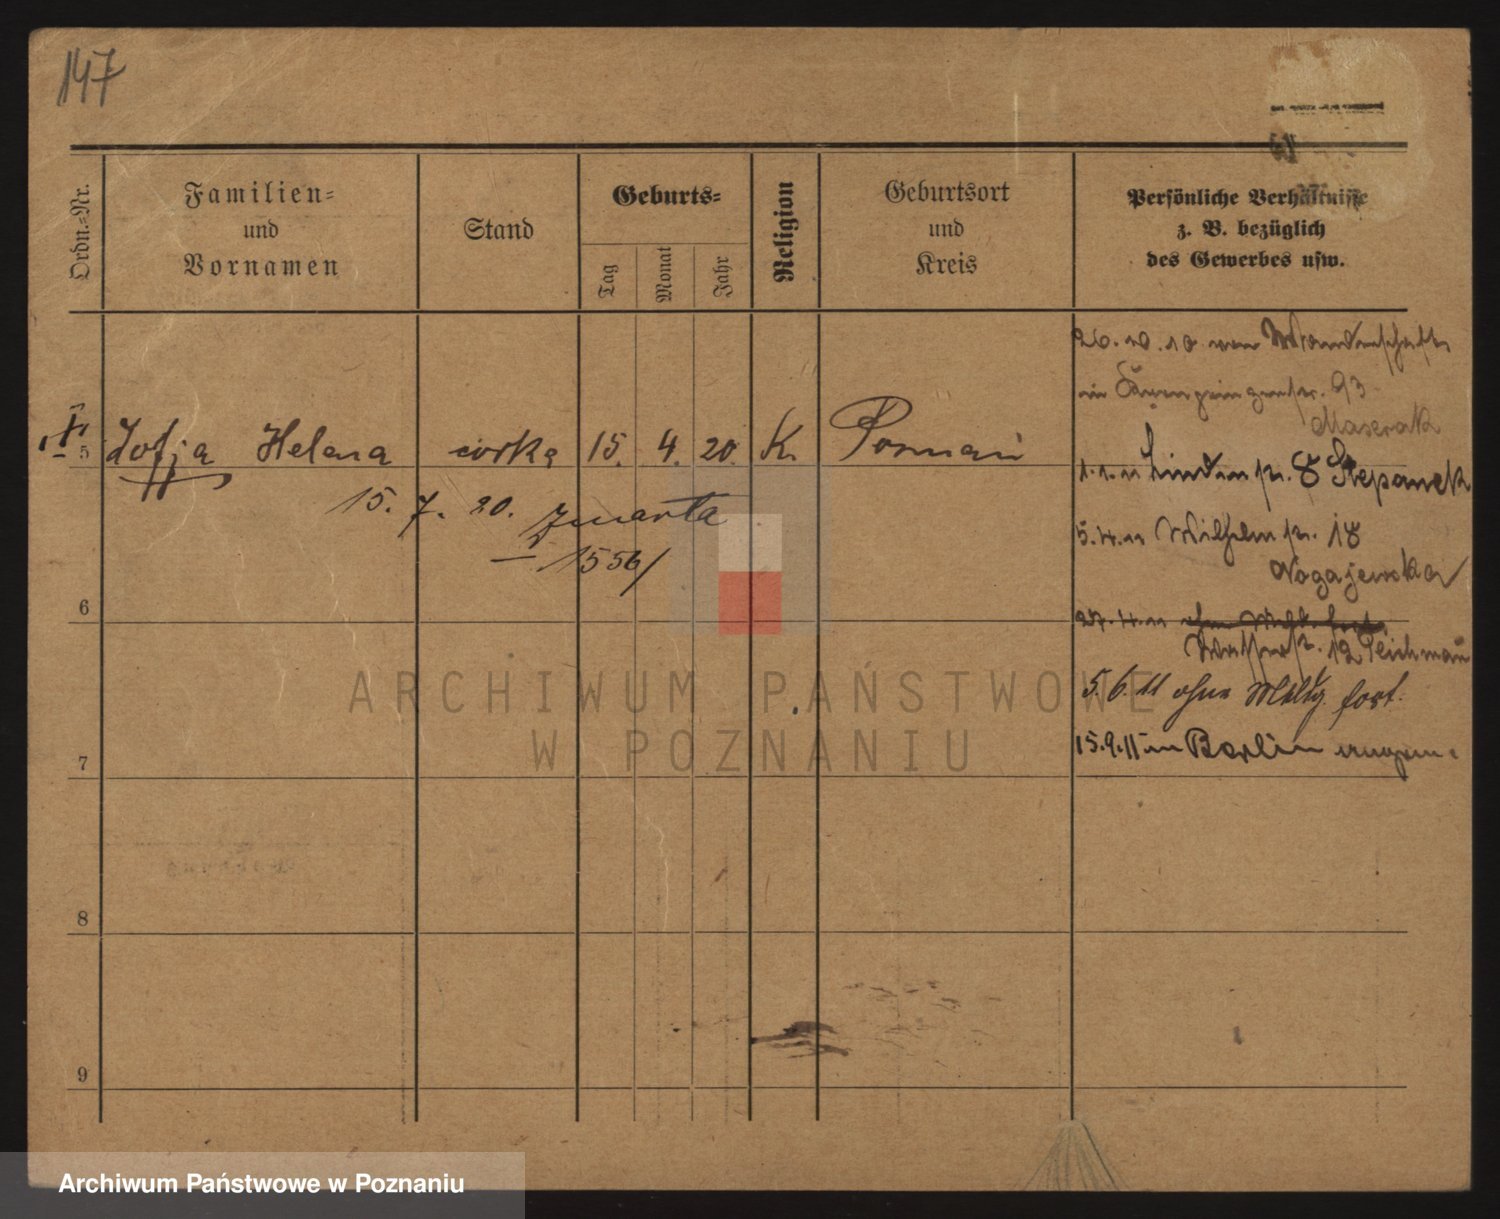 147
Ordn.=Nr.
Familien=
und
Vornamen
Stand
Geburts=
Tag
Monat
Jahr
Religion
Geburtsort
und
Kreis
Persönliche Verhältnisse
z. B. bezüglich
des Gewerbes usw.
5 Zofja Helena córka 15. 4. 20. K. Poznań
15. 7. 20. Zmarła
1556/
6
7
8
9
26.10.10 von Wanderschaft
in 93
Maserak
1.1.11 Lindenstr. 8 Stepanek
5.4.11 Wilhelmstr. 18
Nogajewska
27.4.11
Wasserstr. 12
5.6.11 ohne Meldg. fort.
15.9.11 in Berlin
ARCHIWUM PAŃSTWOWE
W POZNANIU
Archiwum Państwowe w Poznaniu